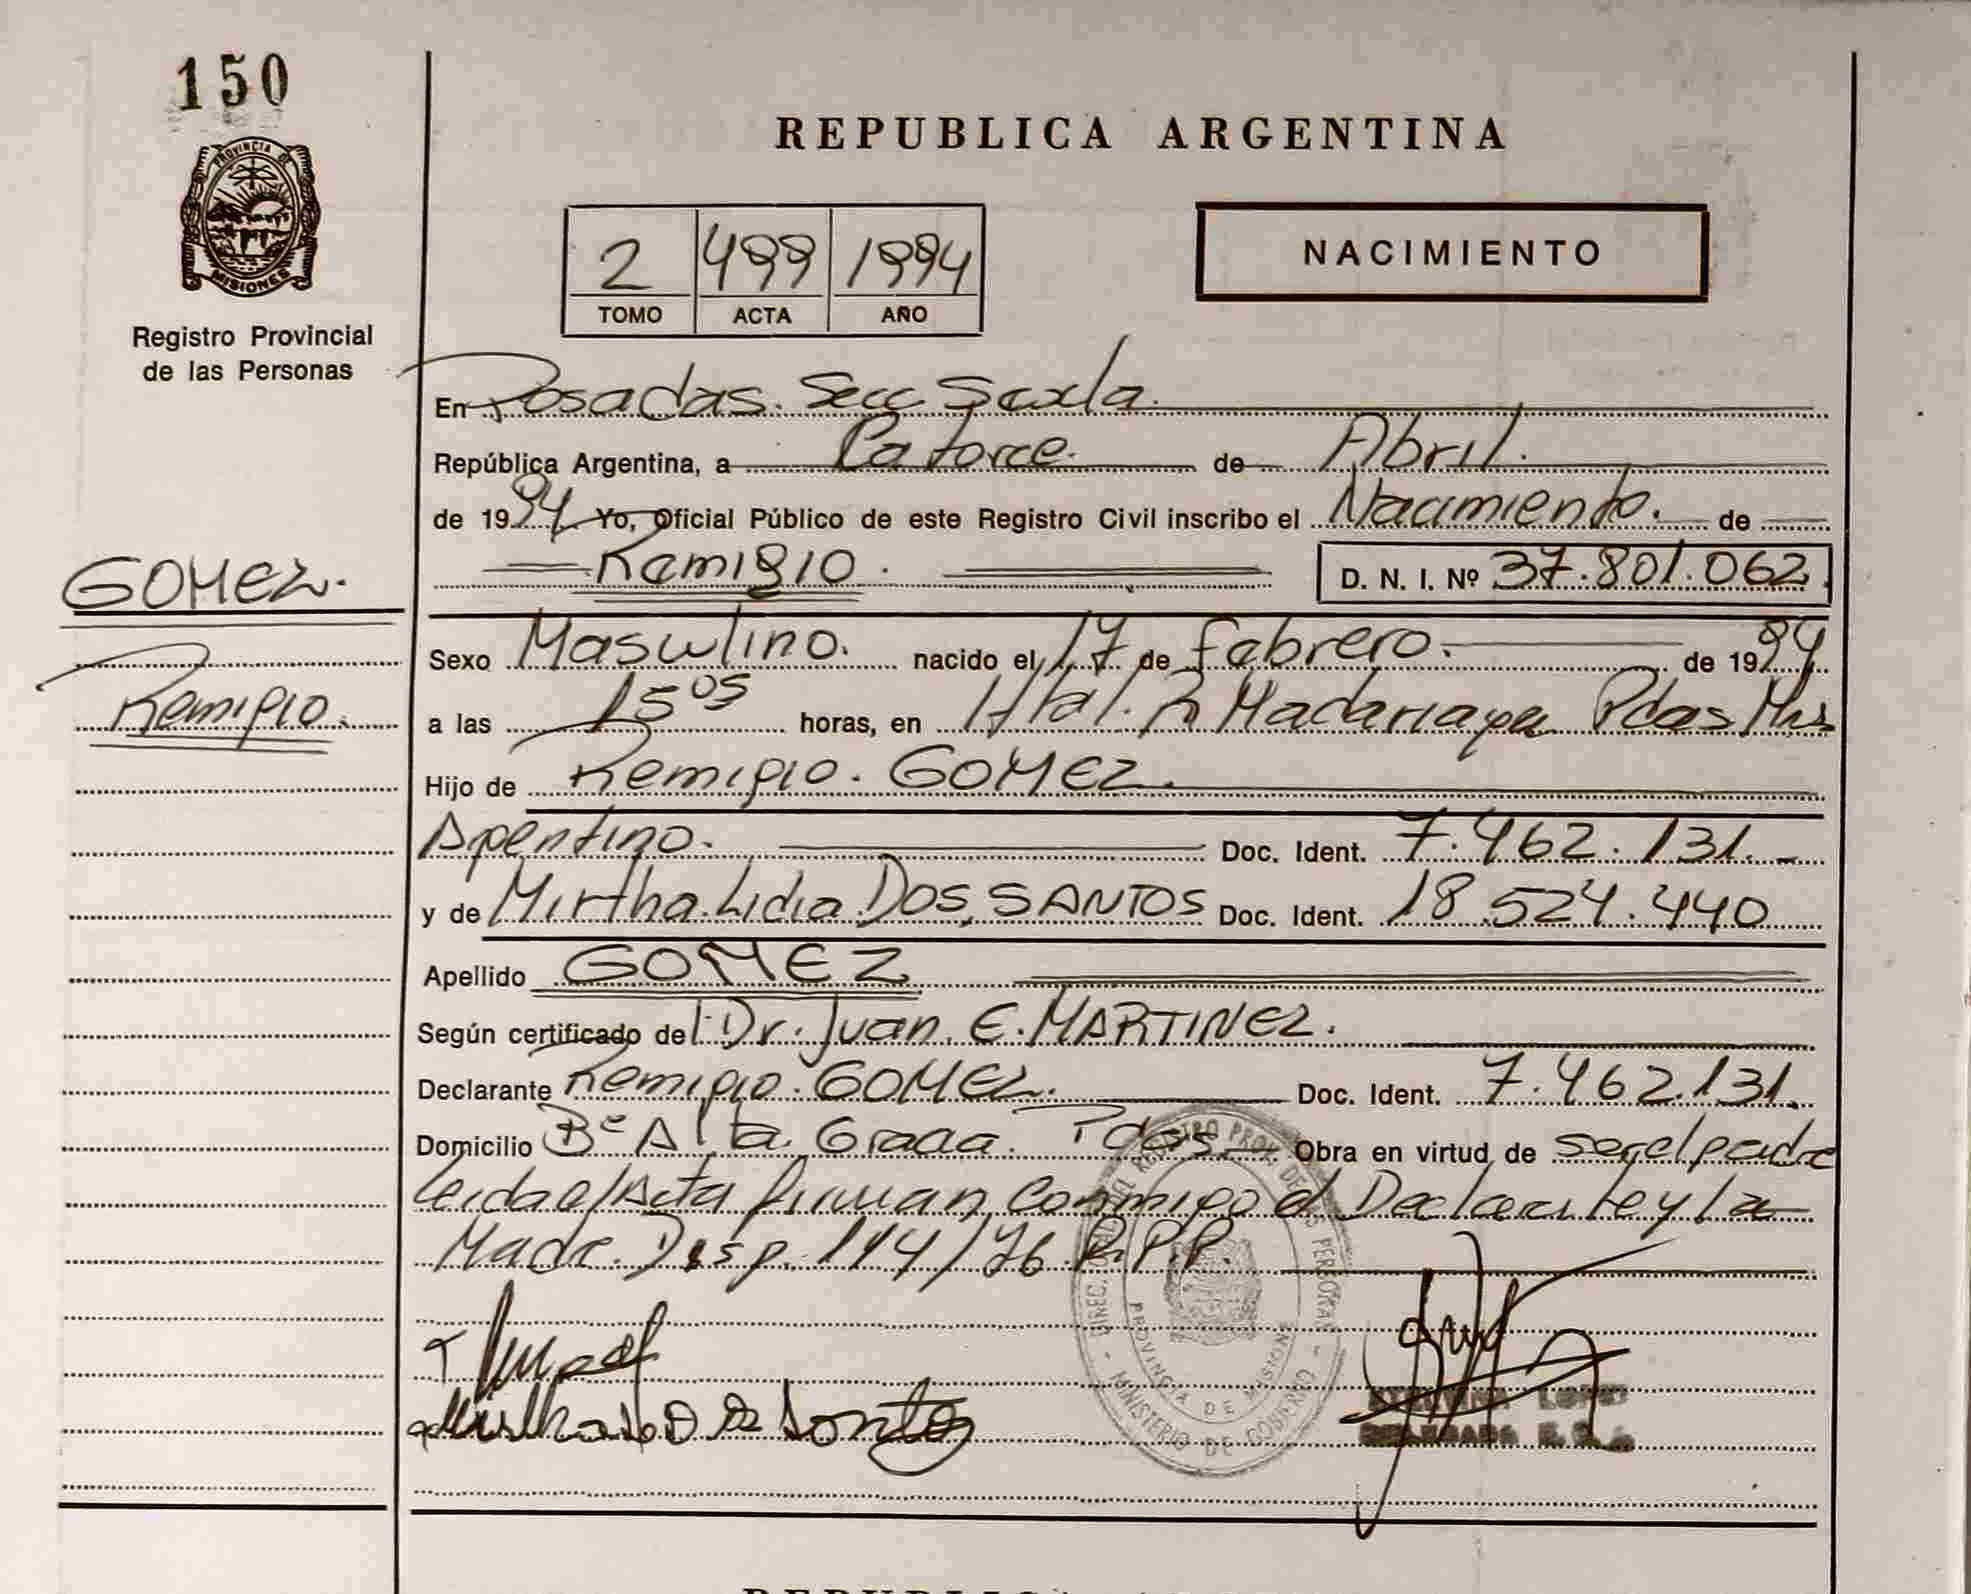 150
PROVINCIA DE
MISIONES
Registro Provincial
de las Personas
REPUBLICA ARGENTINA
2 499 1994
TOMO ACTA AÑO
NACIMIENTO
En Posadas. Secc Sexta
República Argentina, a Catorce. de Abril.
de 1994 Yo, Oficial Público de este Registro Civil inscribo el Nacimiento. de
Remigio. D. N. I. Nº 37.801.062.
GOMEZ.
Remigio.
Sexo Masculino. nacido el 17 de Febrero. de 1994
a las 15 05 horas, en Htal. R Madariaga Pdas Mns
Hijo de Remigio. GOMEZ.
Argentino. Doc. Ident. 7.462.131.-
y de Mirtha Lidia DOS SANTOS Doc. Ident. 18.524.440
Apellido GOMEZ
Según certificado del Dr. Juan. E. MARTINEZ.
Declarante Remigio. GOMEZ. Doc. Ident. 7.462.131.
Domicilio Bº Alta Gracia. Pdas Obra en virtud de ser el padre
Leida el Acta firman conmigo el Declarante y la
Madre. Disp. 114/76 R.P.P.
DIREC. REGISTRO PROV. DE LAS PERSONAS - MINISTERIO DE GOBIERNO -
PROVINCIA DE MISIONES
LOPEZ
DELEGADA
REPUBLICA